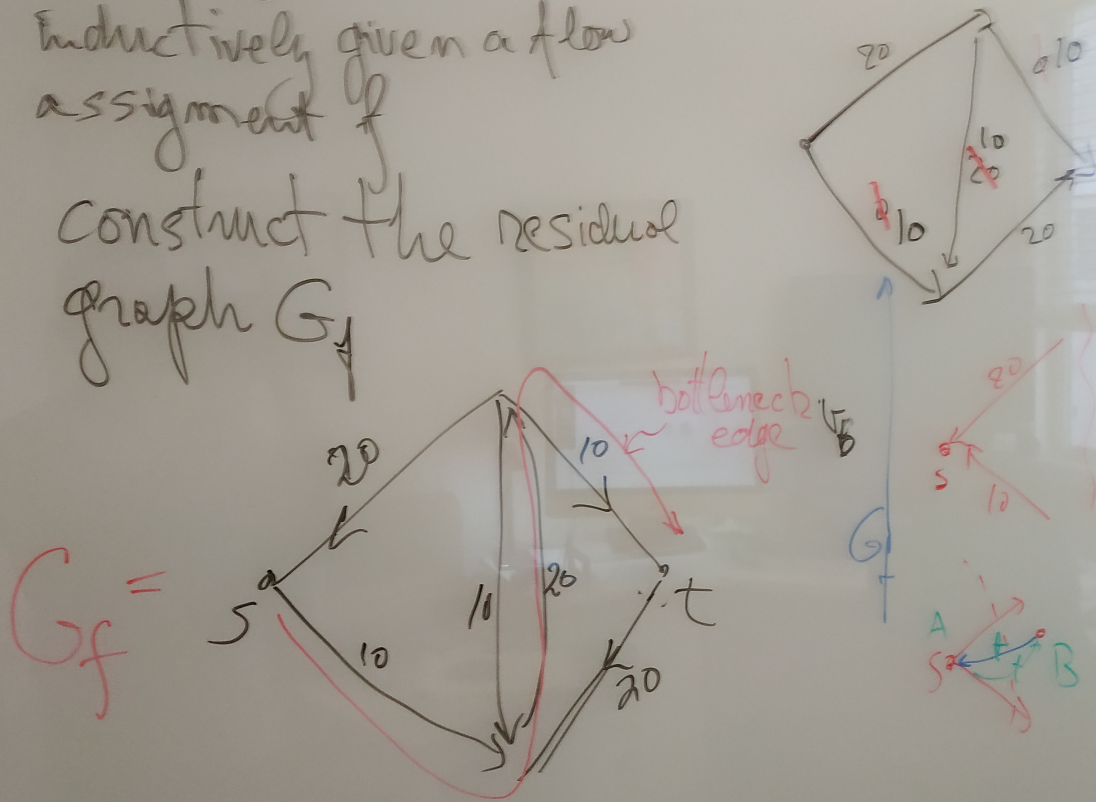 Inductively given a flow
assigment f
construct the residual
graph Gf
20
10
10
20
10
20
bottleneck
edge
20
10
10
20
t
S
10
20
Gf =
20
S
10
G
A
S
t
t
B